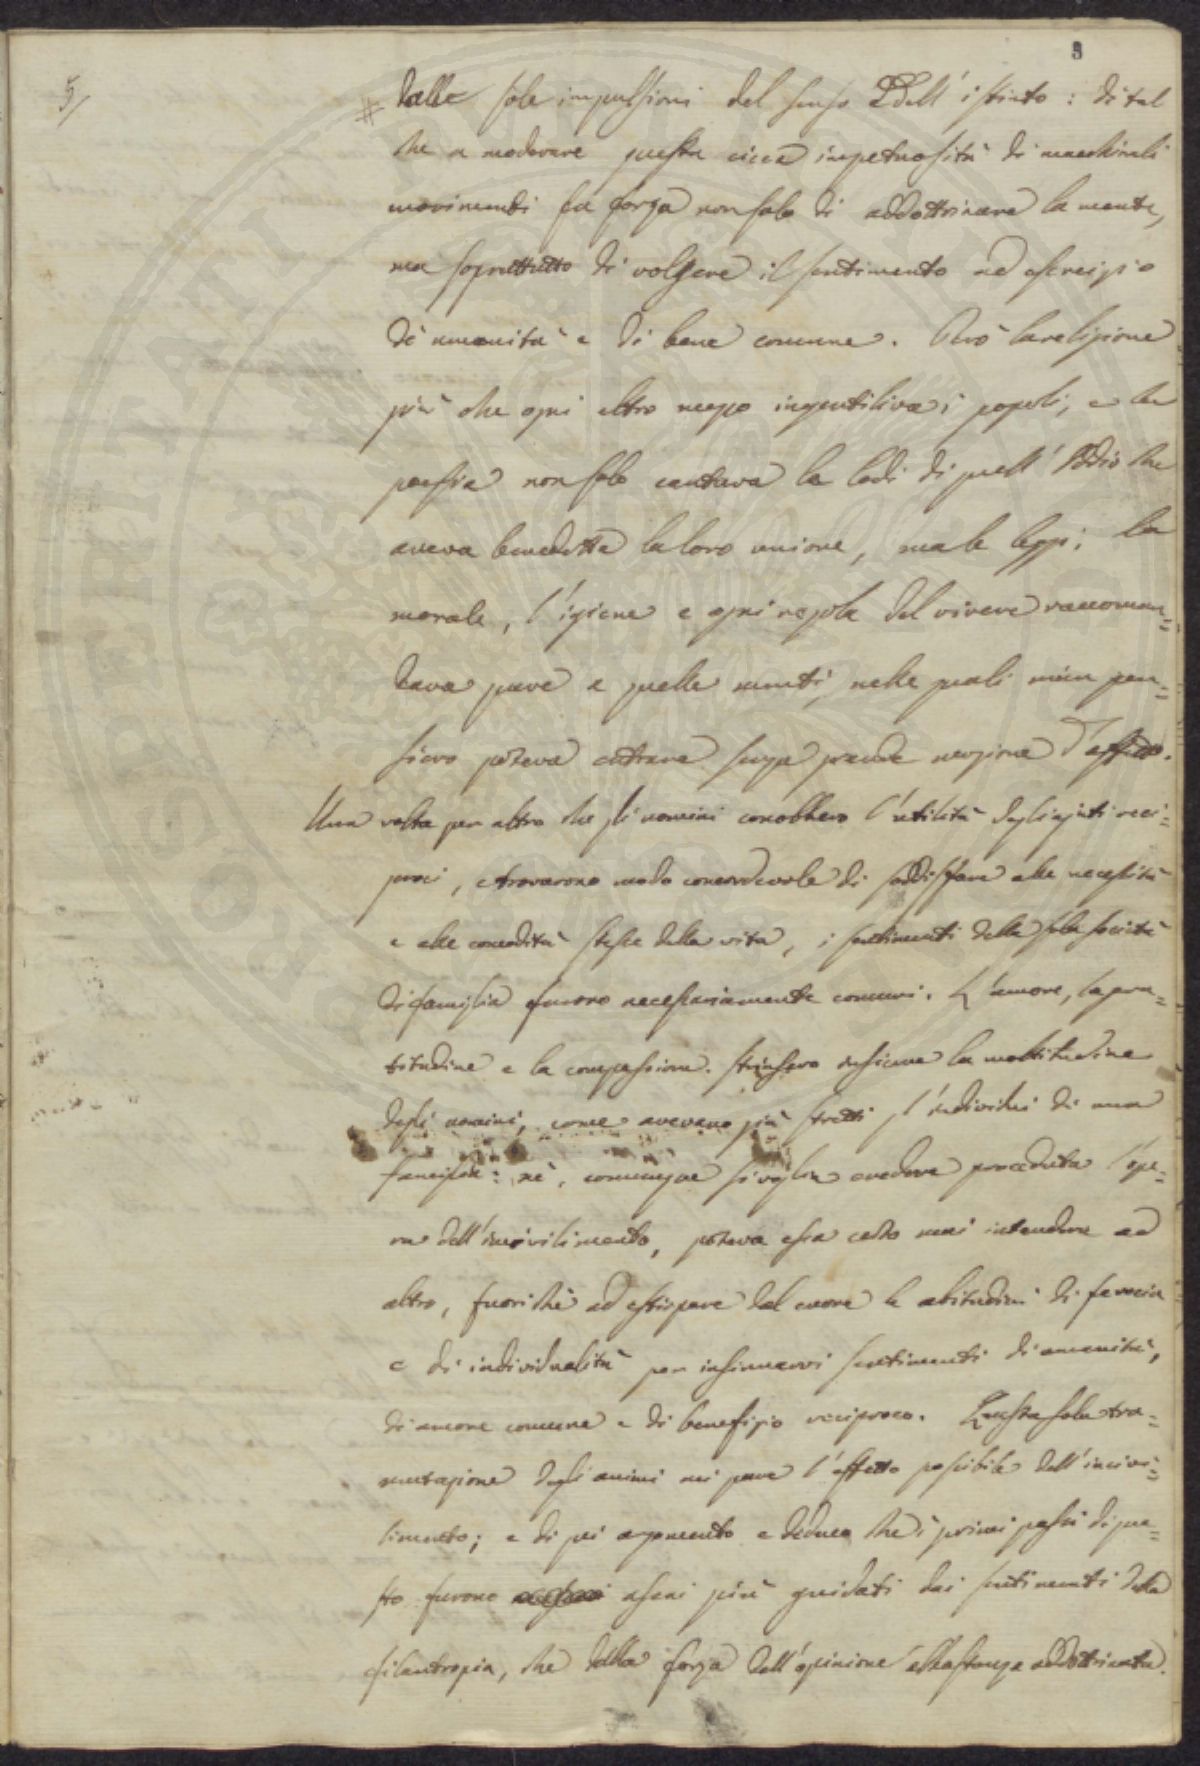 3
5/
# dalle sole impulsioni del senso e dell'istinto: di tal
che a moderare questa cieca impetuosità di macchinali
movimenti fu forza non solo di addottrinare la mente,
ma soprattutto di volgere il sentimento ad esercizio
di umanità e di bene comune. Però la religione
più che ogni altro mezzo ingentiliva i popoli, e la
poesia non solo cantava le lodi di quell'Iddio che
aveva benedetta la loro unione, ma le leggi, la
morale, l'igiene e ogni regola del vivere raccoman=
dava pure a quelle menti, nelle quali niun pen=
siero poteva entrare senza grande cagione d'affetto.
Una volta per altro che gli uomini conobbero l'utilità degli ajuti reci=
proci, e trovarono modo concordevole di soddisfare alle necessità
e alle comodità stesse della vita, i sentimenti della sola società
di famiglia furono necessariamente comuni. L'amore, la gra=
titudine e la compassione strinsero insieme la moltitudine
degli uomini, come avevano più stretti gl'individui di una
famiglia: nè, comunque si voglia credere proceduta l'ope=
ra dell'incivilimento, poteva essa certo mai intendere ad
altro, fuorichè ad estirpare dal cuore le abitudini di ferocia
e di individualità per insinuarvi sentimenti di umanità,
di amore comune e di benefizio reciproco. Questa sola tra=
mutazione degli animi mi pare l'effetto possibile dell'incivi=
limento; e di qui argomento e deduco che i primi passi di que=
sto furono assai più guidati dai sentimenti della
filantropia, che dalla forza dell'opinione abbastanza addottrinata.
POSTERITATI